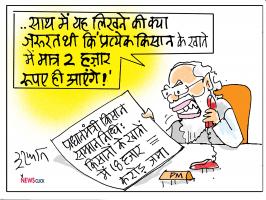 ..साथ में यह लिखने की क्या
ज़रूरत थी कि 'प्रत्येक किसान के खाते
में मात्र 2 हज़ार
रुपए ही आएंगे!'
प्रधानमंत्री किसान
सम्मान निधि:
किसानों के खातों
में 18 हज़ार
करोड़ जमा
PM
इरफ़ान
NEWSCLICK